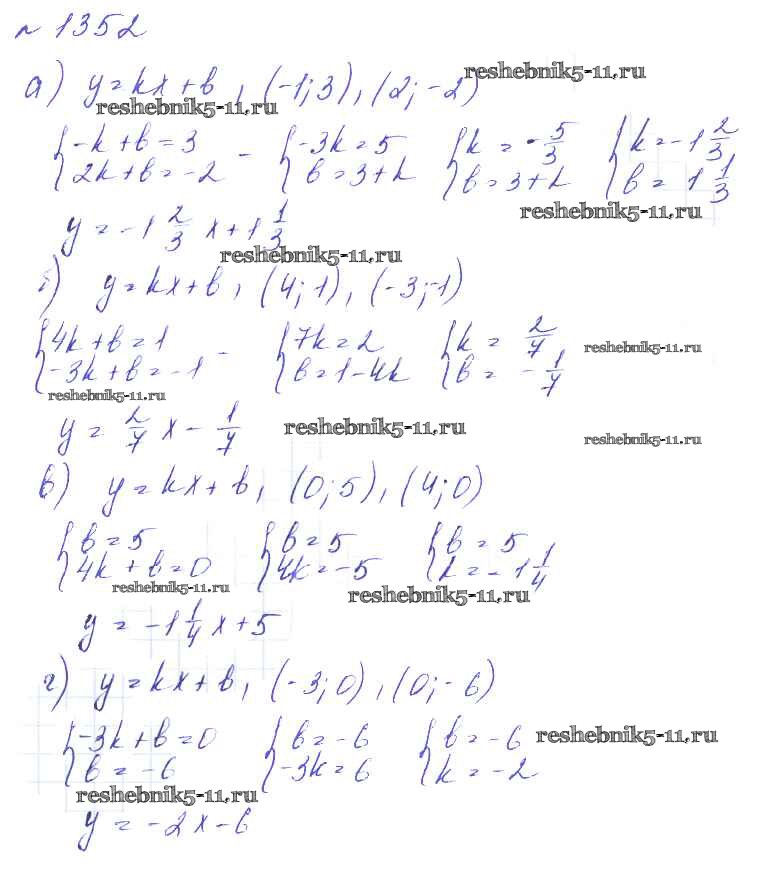 № 1352
а) y=kx+b, (-1; 3), (2; -2)
reshebnik5-11.ru
reshebnik5-11.ru
{-k+b=3 {-3k=5 {k=-5/3 {k=-1 2/3
{2k+b=-2 - {b=3+k {b=3+k {b=1 1/3
reshebnik5-11.ru
y=-1 2/3 x+1 1/3
reshebnik5-11.ru
б) y=kx+b, (4; 1), (-3; -1)
{4k+b=1 {7k=2 {k=2/7
{-3k+b=-1 - {b=1-4k {b=-1/7
reshebnik5-11.ru
reshebnik5-11.ru
y=2/7 x-1/7
reshebnik5-11.ru
reshebnik5-11.ru
в) y=kx+b, (0; 5), (4; 0)
{b=5 {b=5 {b=5
{4k+b=0 {4k=-5 {k=-1 1/4
reshebnik5-11.ru
reshebnik5-11.ru
y=-1 1/4 x+5
г) y=kx+b, (-3; 0), (0; -6)
{-3k+b=0 {b=-6 {b=-6
reshebnik5-11.ru
{b=-6 {-3k=6 {k=-2
reshebnik5-11.ru
y=-2x-6